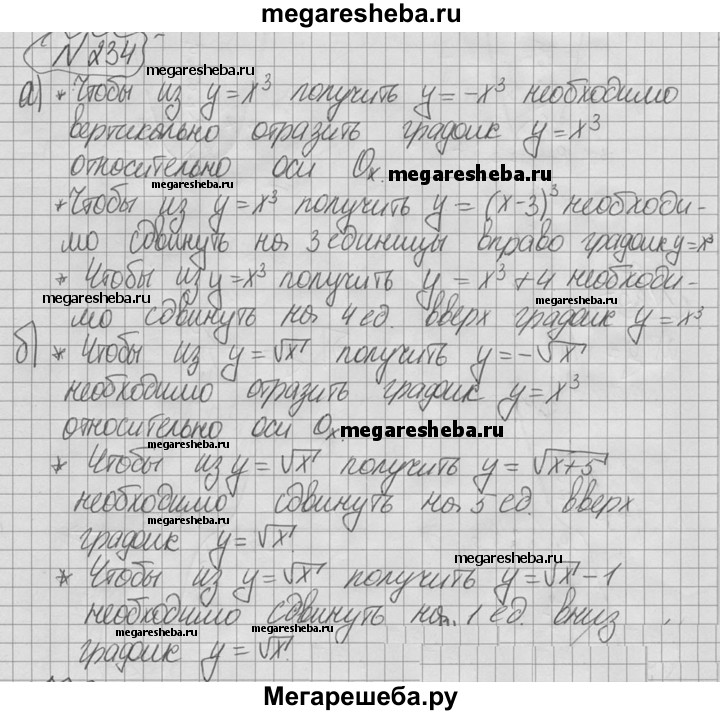 megaresheba.ru
N 234
megaresheba.ru
а) * Чтобы из y = x³ получить y = -x³ необходимо
вертикально отразить график y = x³
относительно оси Ox.
megaresheba.ru
megaresheba.ru
* Чтобы из y = x³ получить y = (x-3)³ необходи-
мо сдвинуть на 3 единицы вправо график y = x³
* Чтобы из y = x³ получить y = x³ + 4 необходи-
megaresheba.ru
megaresheba.ru
мо сдвинуть на 4 ед. вверх график y = x³.
б) * Чтобы из y = √x получить y = -√x
необходимо отразить график y = x³
относительно оси Ox.
megaresheba.ru
megaresheba.ru
* Чтобы из y = √x получить y = √x+5
необходимо сдвинуть на 5 ед. вверх
megaresheba.ru
график y = √x.
megaresheba.ru
* Чтобы из y = √x получить y = √x - 1
необходимо сдвинуть на 1 ед. вниз
megaresheba.ru
megaresheba.ru
график y = √x.
Мегарешеба.ру